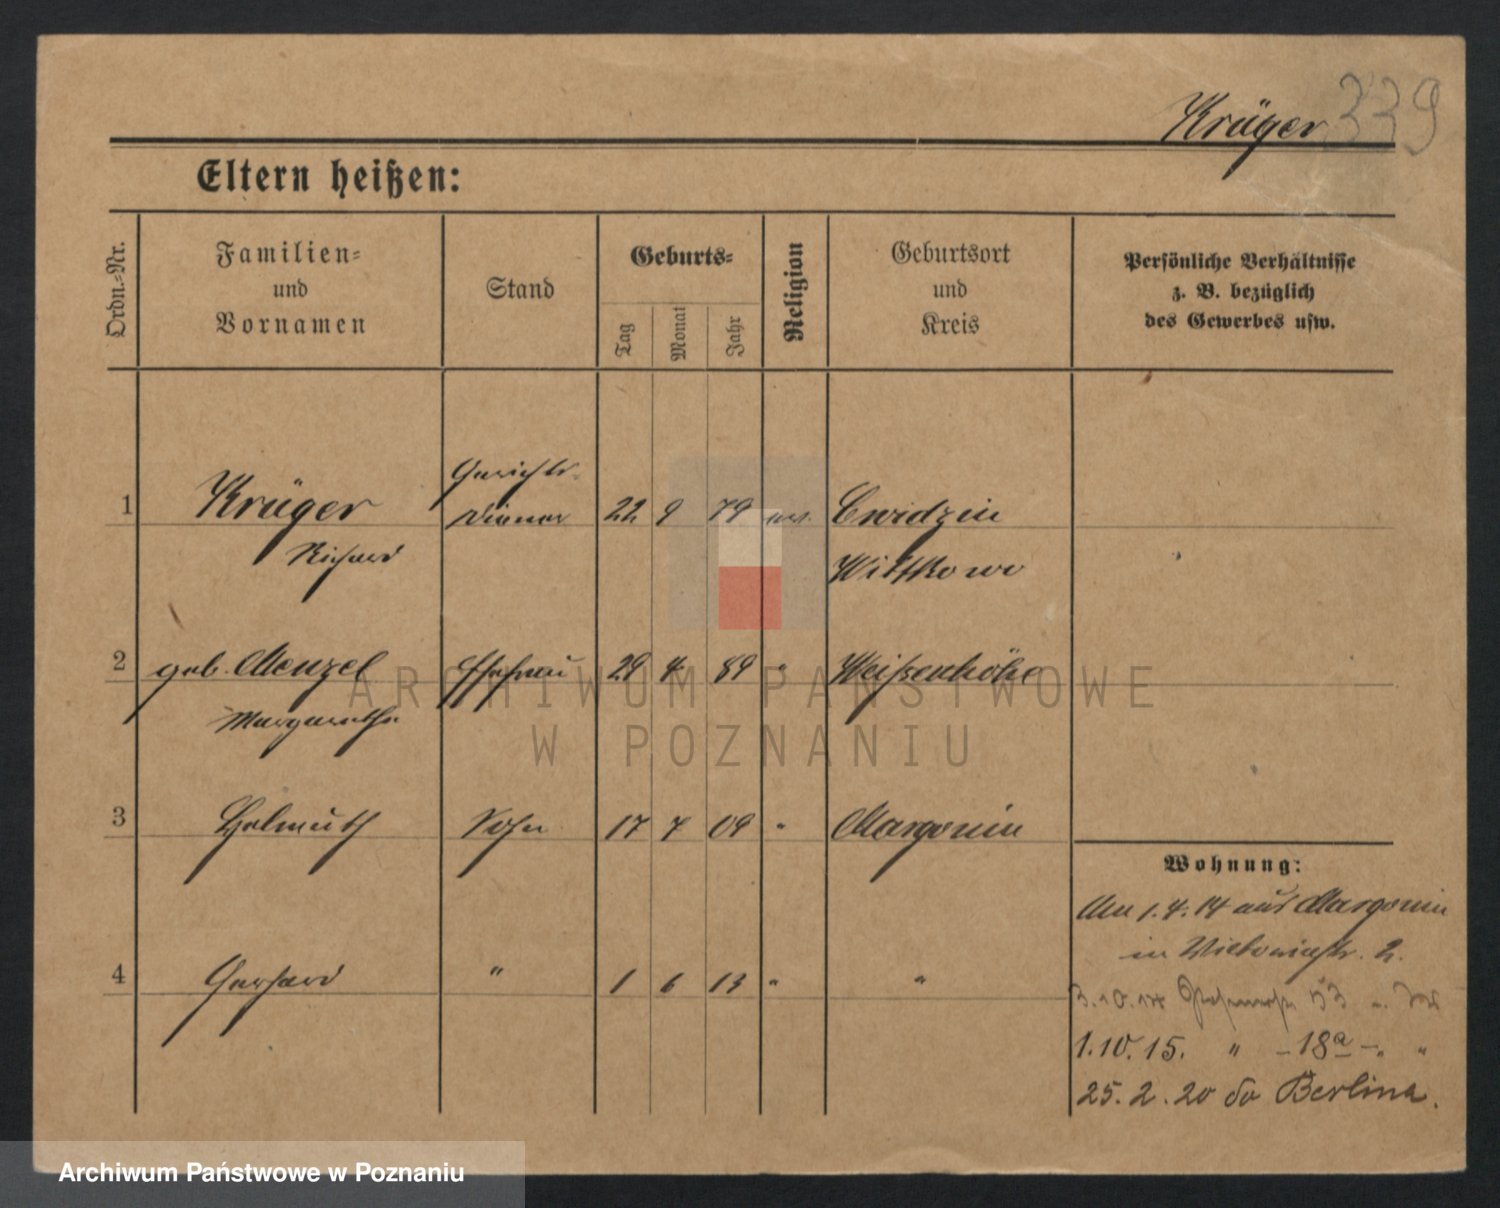 Krüger 339
Eltern heißen:
Ordn.=Nr.
Familien=
und
Vornamen
Stand
Geburts=
Tag
Monat
Jahr
Religion
Geburtsort
und
Kreis
Persönliche Verhältnisse
z. B. bezüglich
des Gewerbes usw.
1 Krüger Gerichts-
diener 22 9 79 ev. Cwidzin
Richard Wittkowo
2 geb. Menzel Ehefrau 29 4 89 " Weißenhöhe
Margarethe
3 Helmuth Sohn 17 7 09 " Margonin
4 Gerhard " 1 6 13 " "
Wohnung:
Am 1.4.14 aus Margonin
in Viktoriastr. 2.
3.10.14 53
1.10.15. " - 18a - " "
25.2.20 do Berlina.
ARCHIWUM PAŃSTWOWE
W POZNANIU
Archiwum Państwowe w Poznaniu